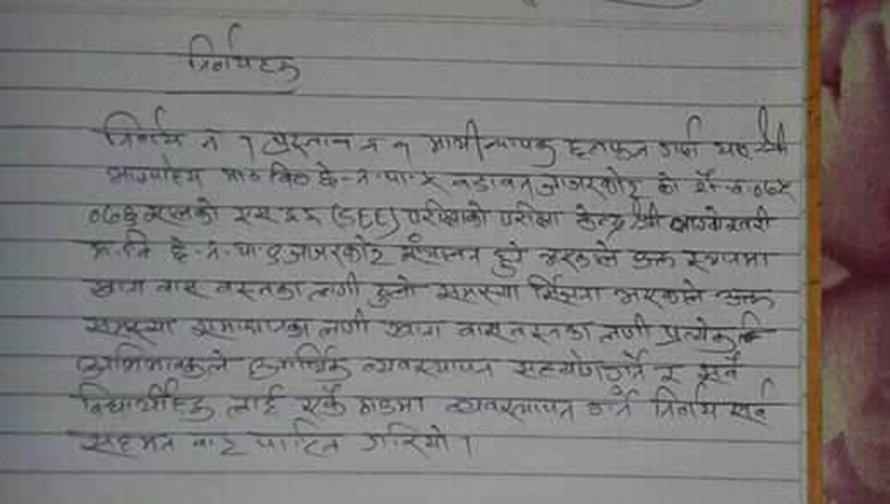 निर्णयहरु
निर्णय नं १ प्रस्ताव नं १ माथी छलफल गर्दा यस श्री
मा०वि० छे.न.पा. जाजरकोट को शै.स. ०७५
०७६ सालको एस ई ई (SEE) परीक्षाको परीक्षा केन्द्र श्री
मा.वि छे.न.पा जाजरकोट संचालन हुने भएकाले उक्त स्थानमा
खाना वास वस्नका लागी ठुलो समस्या सिर्जना भएकाले उक्त
समस्या समाधानका लागी खाना वास वस्नका लागी प्रत्येक
अभिभावकले आर्थिक व्यवस्थापन सहयोग गर्ने र सवै
विद्यार्थीहरु लाई एकै ठाउमा व्यवस्थापन गर्ने निर्णय सर्व
सहमत वाट पारित गरियो ।